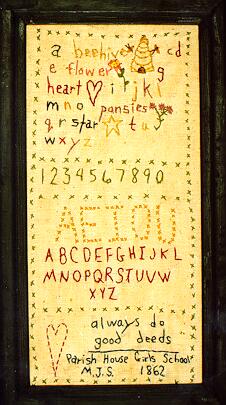 a beehive cd
e flower g
heart i j k l
m n o pansies
q r star t u v
w x y z
1234567890
AEIOU
ABCDEFGHIJKL
MNOPQRSTUVW
XYZ
always do
good deeds
Parish House Girls School
M.J.S. 1862